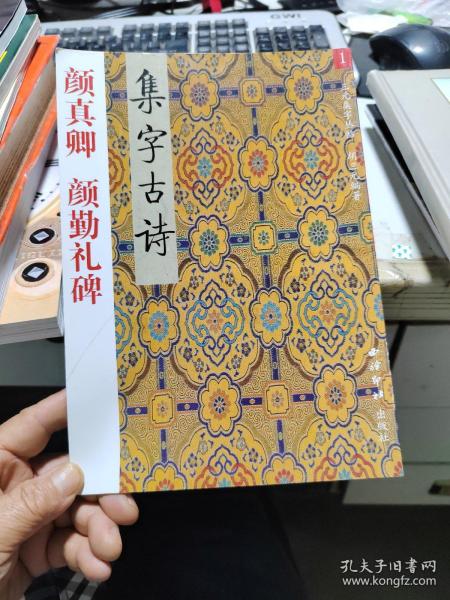 颜真卿 颜勤礼碑
集字古诗
1
西泠印社 出版社
GWI
孔夫子旧书网
www.kongfz.com